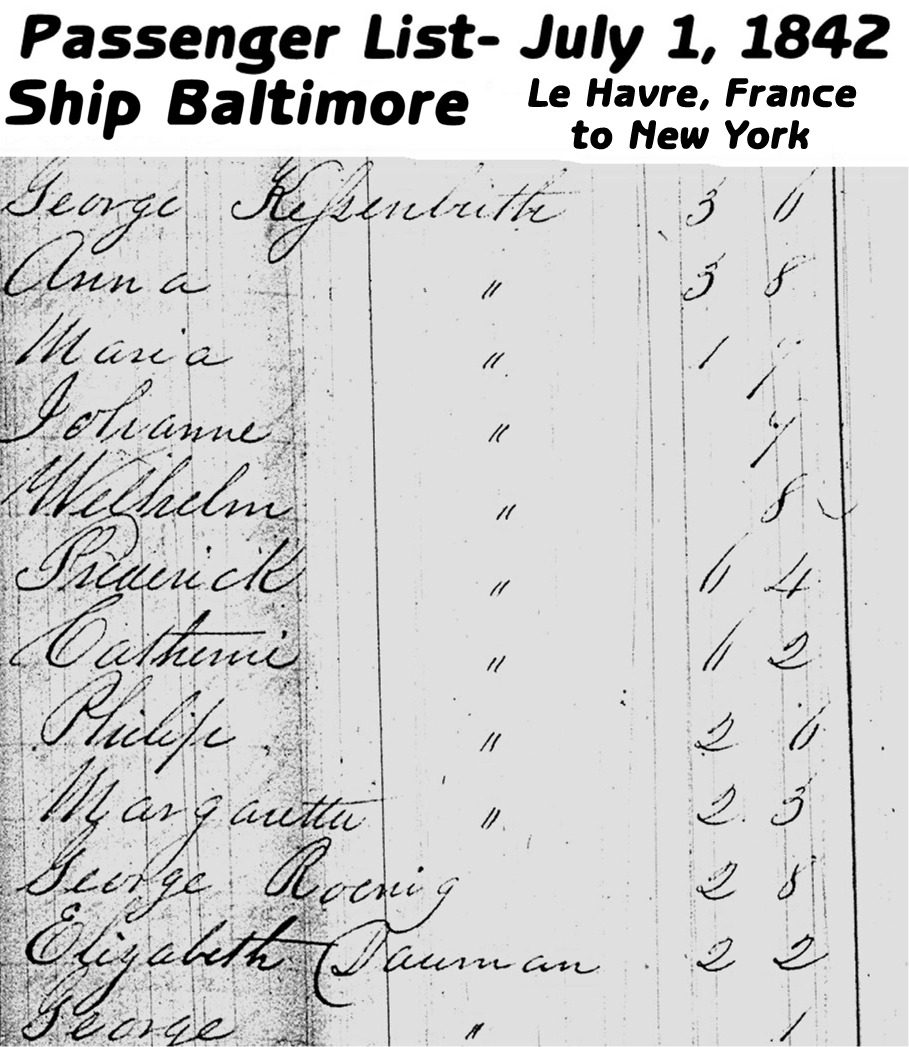 Passenger List- July 1, 1842
Ship Baltimore
Le Havre, France
to New York
George Kessenbrith 3 6
Anna " 3 8
Maria " 1 7
Johanne " 7
Wilhelm " 8
Frederick " 6 4
Catherine " 6 2
Philip " 2 6
Margaretta " 2 3
George Roenig 2 8
Elizabeth Dauman 2 2
George " 1